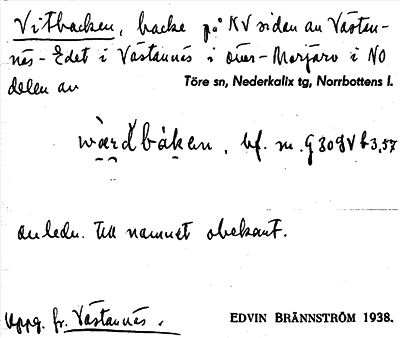 Vitbacken, backe på KV sidan av Västan-
näs-Edet i Västannäs i över-Morjärv i NO
delen av Töre sn, Nederkalix tg, Norrbottens l.
bf. m.
anledn. till namnet obekant.
Uppg. fr. Västannäs.
EDVIN BRÄNNSTRÖM 1938.